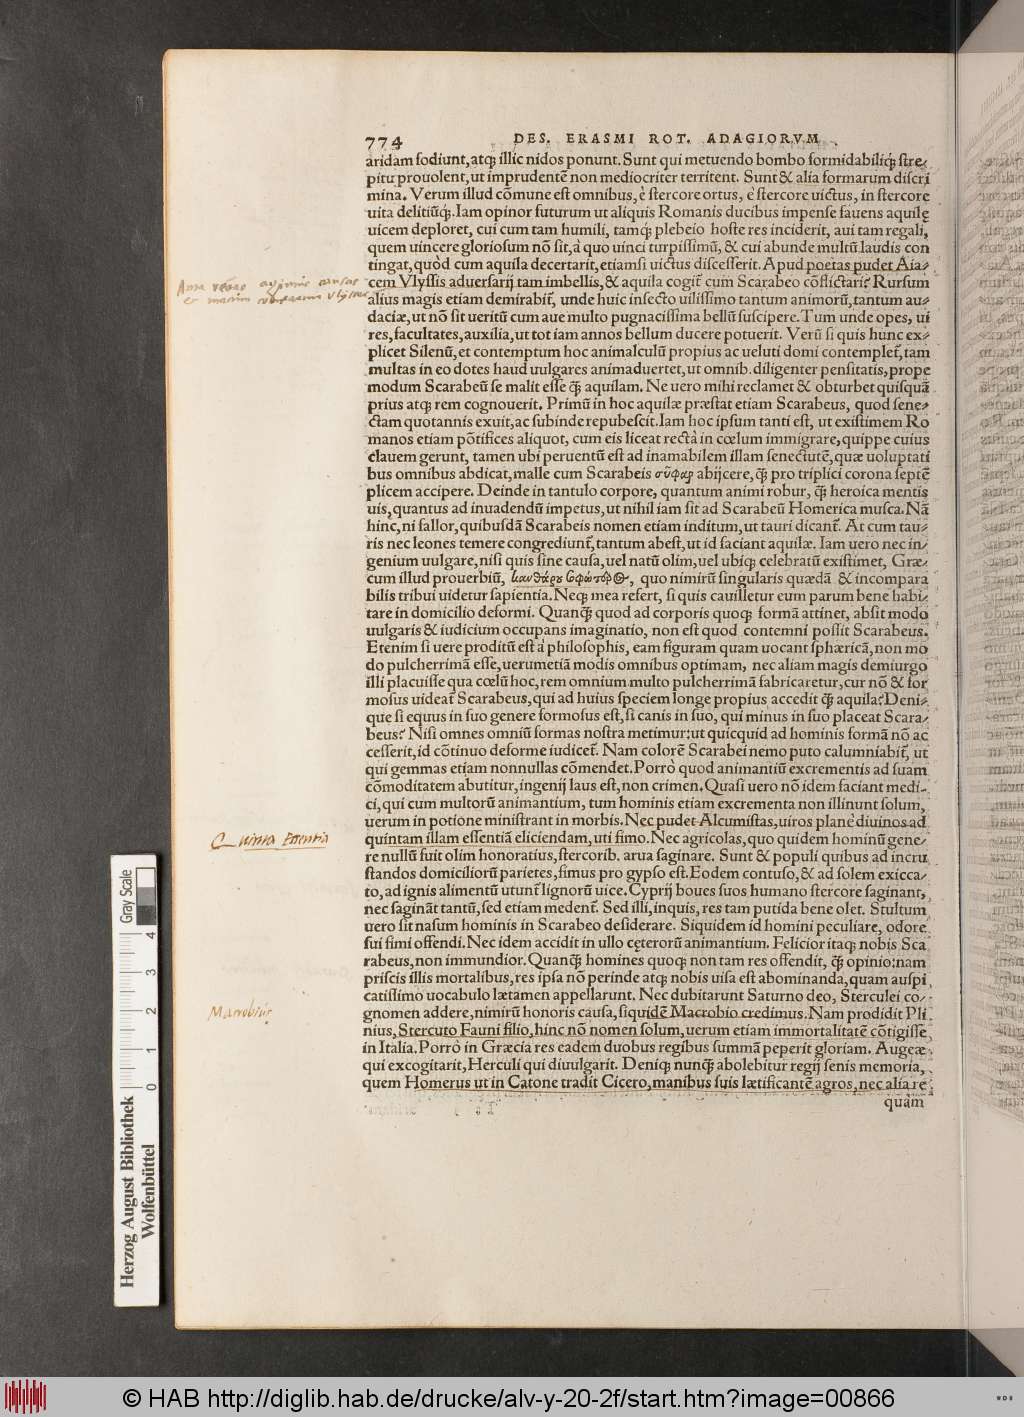 774 DES. ERASMI ROT. ADAGIORVM
aridam fodiunt, atqꝫ illic nidos ponunt. Sunt qui metuendo bombo formidabiliqꝫ stre-
pitu prouolent, ut imprudentē non mediocriter territent. Sunt & alia formarum discri
mina. Verum illud cōmune est omnibus, è stercore ortus, è stercore uictus, in stercore
uita delitiūqꝫ. Iam opinor futurum ut aliquis Romanis ducibus impense fauens aquilę
uicem deploret, cui cum tam humili, tamqꝫ plebeio hoste res inciderit, aui tam regali,
quem uincere gloriosum nō sit, à quo uinci turpissimū, & cui abunde multū laudis con
tingat, quòd cum aquila decertarit, etiamsi uictus discesserit. Apud poetas pudet Aia-
cem Vlyssis aduersarij tam imbellis, & aquila cogit̃ cum Scarabeo cōflictari? Rursum
alius magis etiam demirabit̃, unde huic insecto uilissimo tantum animorū, tantum au-
daciæ, ut nō sit ueritū cum aue multo pugnacissima bellū suscipere. Tum unde opes, ui
res, facultates, auxilia, ut tot iam annos bellum ducere potuerit. Verū si quis hunc ex-
plicet Silenū, et contemptum hoc animalculū propius ac ueluti domi contemplet̃, tam
multas in eo dotes haud uulgares animaduertet, ut omnib. diligenter pensitatis, prope
modum Scarabeū se malit esse qꝫ̃ aquilam. Ne uero mihi reclamet & obturbet quisquā
prius atqꝫ rem cognouerit. Primū in hoc aquilæ præstat etiam Scarabeus, quod sene-
ctam quotannis exuit, ac subinde repubescit. Iam hoc ipsum tanti est, ut existimem Ro
manos etiam pōtifices aliquot, cum eis liceat rectà in cœlum immigrare, quippe cuius
clauem gerunt, tamen ubi peruentū est ad inamabilem illam senectutē, quæ uoluptati
bus omnibus abdicat, malle cum Scarabeis σῦφαρ abijcere, qꝫ̃ pro triplici corona septē
plicem accipere. Deinde in tantulo corpore, quantum animi robur, qꝫ̃ heroica mentis
uis, quantus ad inuadendū impetus, ut nihil iam sit ad Scarabeū Homerica musca. Nā
hinc, ni fallor, quibusdā Scarabeis nomen etiam inditum, ut tauri dicant̃. At cum tau-
ris nec leones temere congrediunt̃, tantum abest, ut id faciant aquilæ. Iam uero nec in-
genium uulgare, nisi quis sine causa, uel natū olim, uel ubiqꝫ celebratū existimet, Græ-
cum illud prouerbiū, κανθάρου σοφώτερος, quo nimirū singularis quædā & incompara
bilis tribui uidetur sapientia. Necqꝫ mea refert, si quis cauilletur eum parum bene habi-
tare in domicilio deformi. Quanqꝫ̃ quod ad corporis quoqꝫ formā attinet, absit modo
uulgaris & iudicium occupans imaginatio, non est quod contemni possit Scarabeus.
Etenim si uere proditū est à philosophis, eam figuram quam uocant sphæricā, non mo
do pulcherrimā esse, uerumetiā modis omnibus optimam, nec aliam magis demiurgo
illi placuisse qua cœlū hoc, rem omnium multo pulcherrimā fabricaretur, cur nō & for
mosus uideat̃ Scarabeus, qui ad huius speciem longe propius accedit qꝫ̃ aquila? Deni-
que si equus in suo genere formosus est, si canis in suo, qui minus in suo placeat Scara-
beus? Nisi omnes omniū formas nostra metimur: ut quicquid ad hominis formā nō ac
cesserit, id cōtinuo deforme iudicet̃. Nam colorē Scarabei nemo puto calumniabit̃, ut
qui gemmas etiam nonnullas cōmendet. Porrò quod animantiū excrementis ad suam
cōmoditatem abutitur, ingenij laus est, non crimen. Quasi uero nō idem faciant medi-
ci, qui cum multorū animantium, tum hominis etiam excrementa non illinunt solum,
uerum in potione ministrant in morbis. Nec pudet Alcumistas, uiros planè diuinos ad
quintam illam essentiā eliciendam, uti fimo. Nec agricolas, quo quidem hominū gene-
re nullū fuit olim honoratius, stercorib. arua saginare. Sunt & populi quibus ad incru
standos domiciliorū parietes, fimus pro gypso est. Eodem contuso, & ad solem exicca-
to, ad ignis alimentū utunt̃ lignorū uice. Cyprij boues suos humano stercore saginant,
nec sagināt tantū, sed etiam medent̃. Sed illi, inquis, res tam putida bene olet. Stultum
uero sit nasum hominis in Scarabeo desiderare. Siquidem id homini peculiare, odore
sui fimi offendi. Nec idem accidit in ullo cęterorū animantium. Felicior itaqꝫ nobis Sca
rabeus, non immundior. Quanqꝫ̃ homines quoqꝫ non tam res offendit, qꝫ̃ opinio: nam
priscis illis mortalibus, res ipsa nō perinde atqꝫ nobis uisa est abominanda, quam auspi
catissimo uocabulo lætamen appellarunt. Nec dubitarunt Saturno deo, Sterculei co-
gnomen addere, nimirū honoris causa, siquidē Macrobio credimus. Nam prodidit Pli
nius, Stercuto Fauni filio, hinc nō nomen solum, uerum etiam immortalitatē cōtigisse
in Italia. Porrò in Græcia res eadem duobus regibus summā peperit gloriam. Augeæ
qui excogitarit, Herculi qui diuulgarit. Deniqꝫ nunqꝫ̃ abolebitur regij senis memoria,
quem Homerus ut in Catone tradit Cicero, manibus suis lætificantē agros, nec alia re
quàm
Quinta Essentia
Macrobius
Gray Scale
0 1 2 3 4
Herzog August Bibliothek
Wolfenbüttel
© HAB http://diglib.hab.de/drucke/alv-y-20-2f/start.htm?image=00866